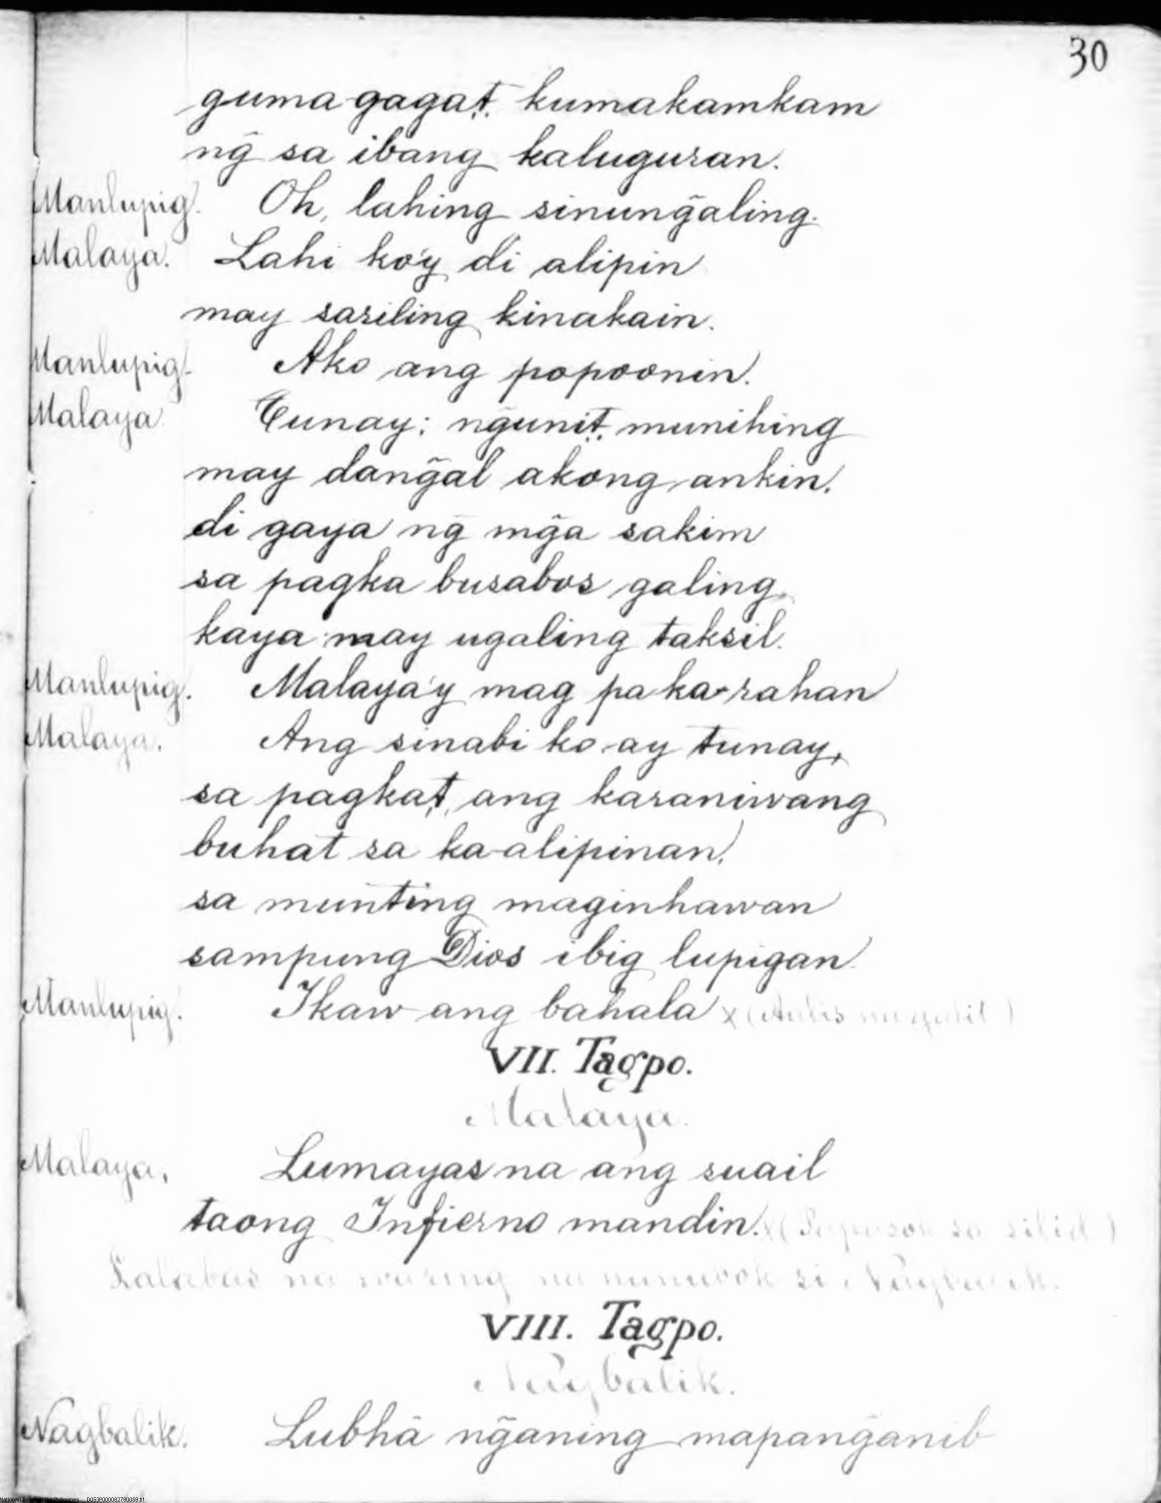 30
guma gagat, kumakamkam
ng̃ sa ibang kaluguran.
Manlupig. Oh, lahing sinung̃aling.
Malaya. Lahi ko'y di alipin
may sariling kinakain.
Manlupig. Ako ang popoonin.
Malaya. Tunay; ng̃unit, munihing
may dang̃al akong ankin,
di gaya ng̃ mg̃a sakim
sa pagka busabos galing
kaya may ugaling taksil.
Manlupig. Malaya'y mag paka-rahan
Malaya. Ang sinabi ko ay tunay,
sa pagkat, ang karaniwang
buhat sa ka-alipinan,
sa munting maginhawan
sampung Dios ibig lupigan.
Manlupig. Ikaw ang bahala x (Aalis na galit)
VII. Tagpo.
Malaya.
Malaya, Lumayas na ang suail
taong Infierno mandin. x (Papasok sa silid)
Lalabas na waring na si Nagbalik.
VIII. Tagpo.
Nagbalik.
Nagbalik. Lubhâ ng̃aning mapang̃anib